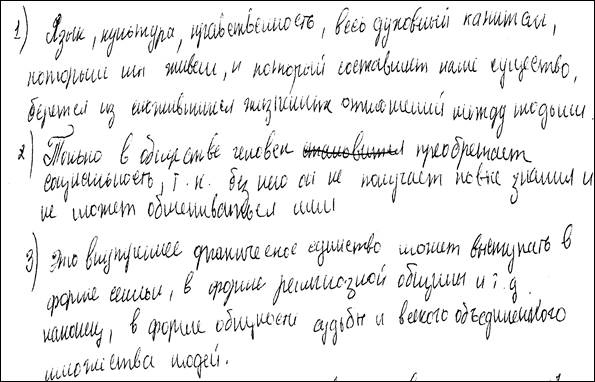 1) Язык, культура, нравственность, весь духовный капитал,
которым мы живем, и который составляет наше существо,
берется из сложившихся жизненных отношений между людьми.
2) Только в обществе человек становится преобретает
социальность, т.к. без него он не получает новые знания и
не может обмениваться ими
3) Это внутреннее органическое единство может выступать в
форме семьи, в форме религиозной общины и т.д.
наконец, в форме общности судьбы и всякого объединенного
множества людей.